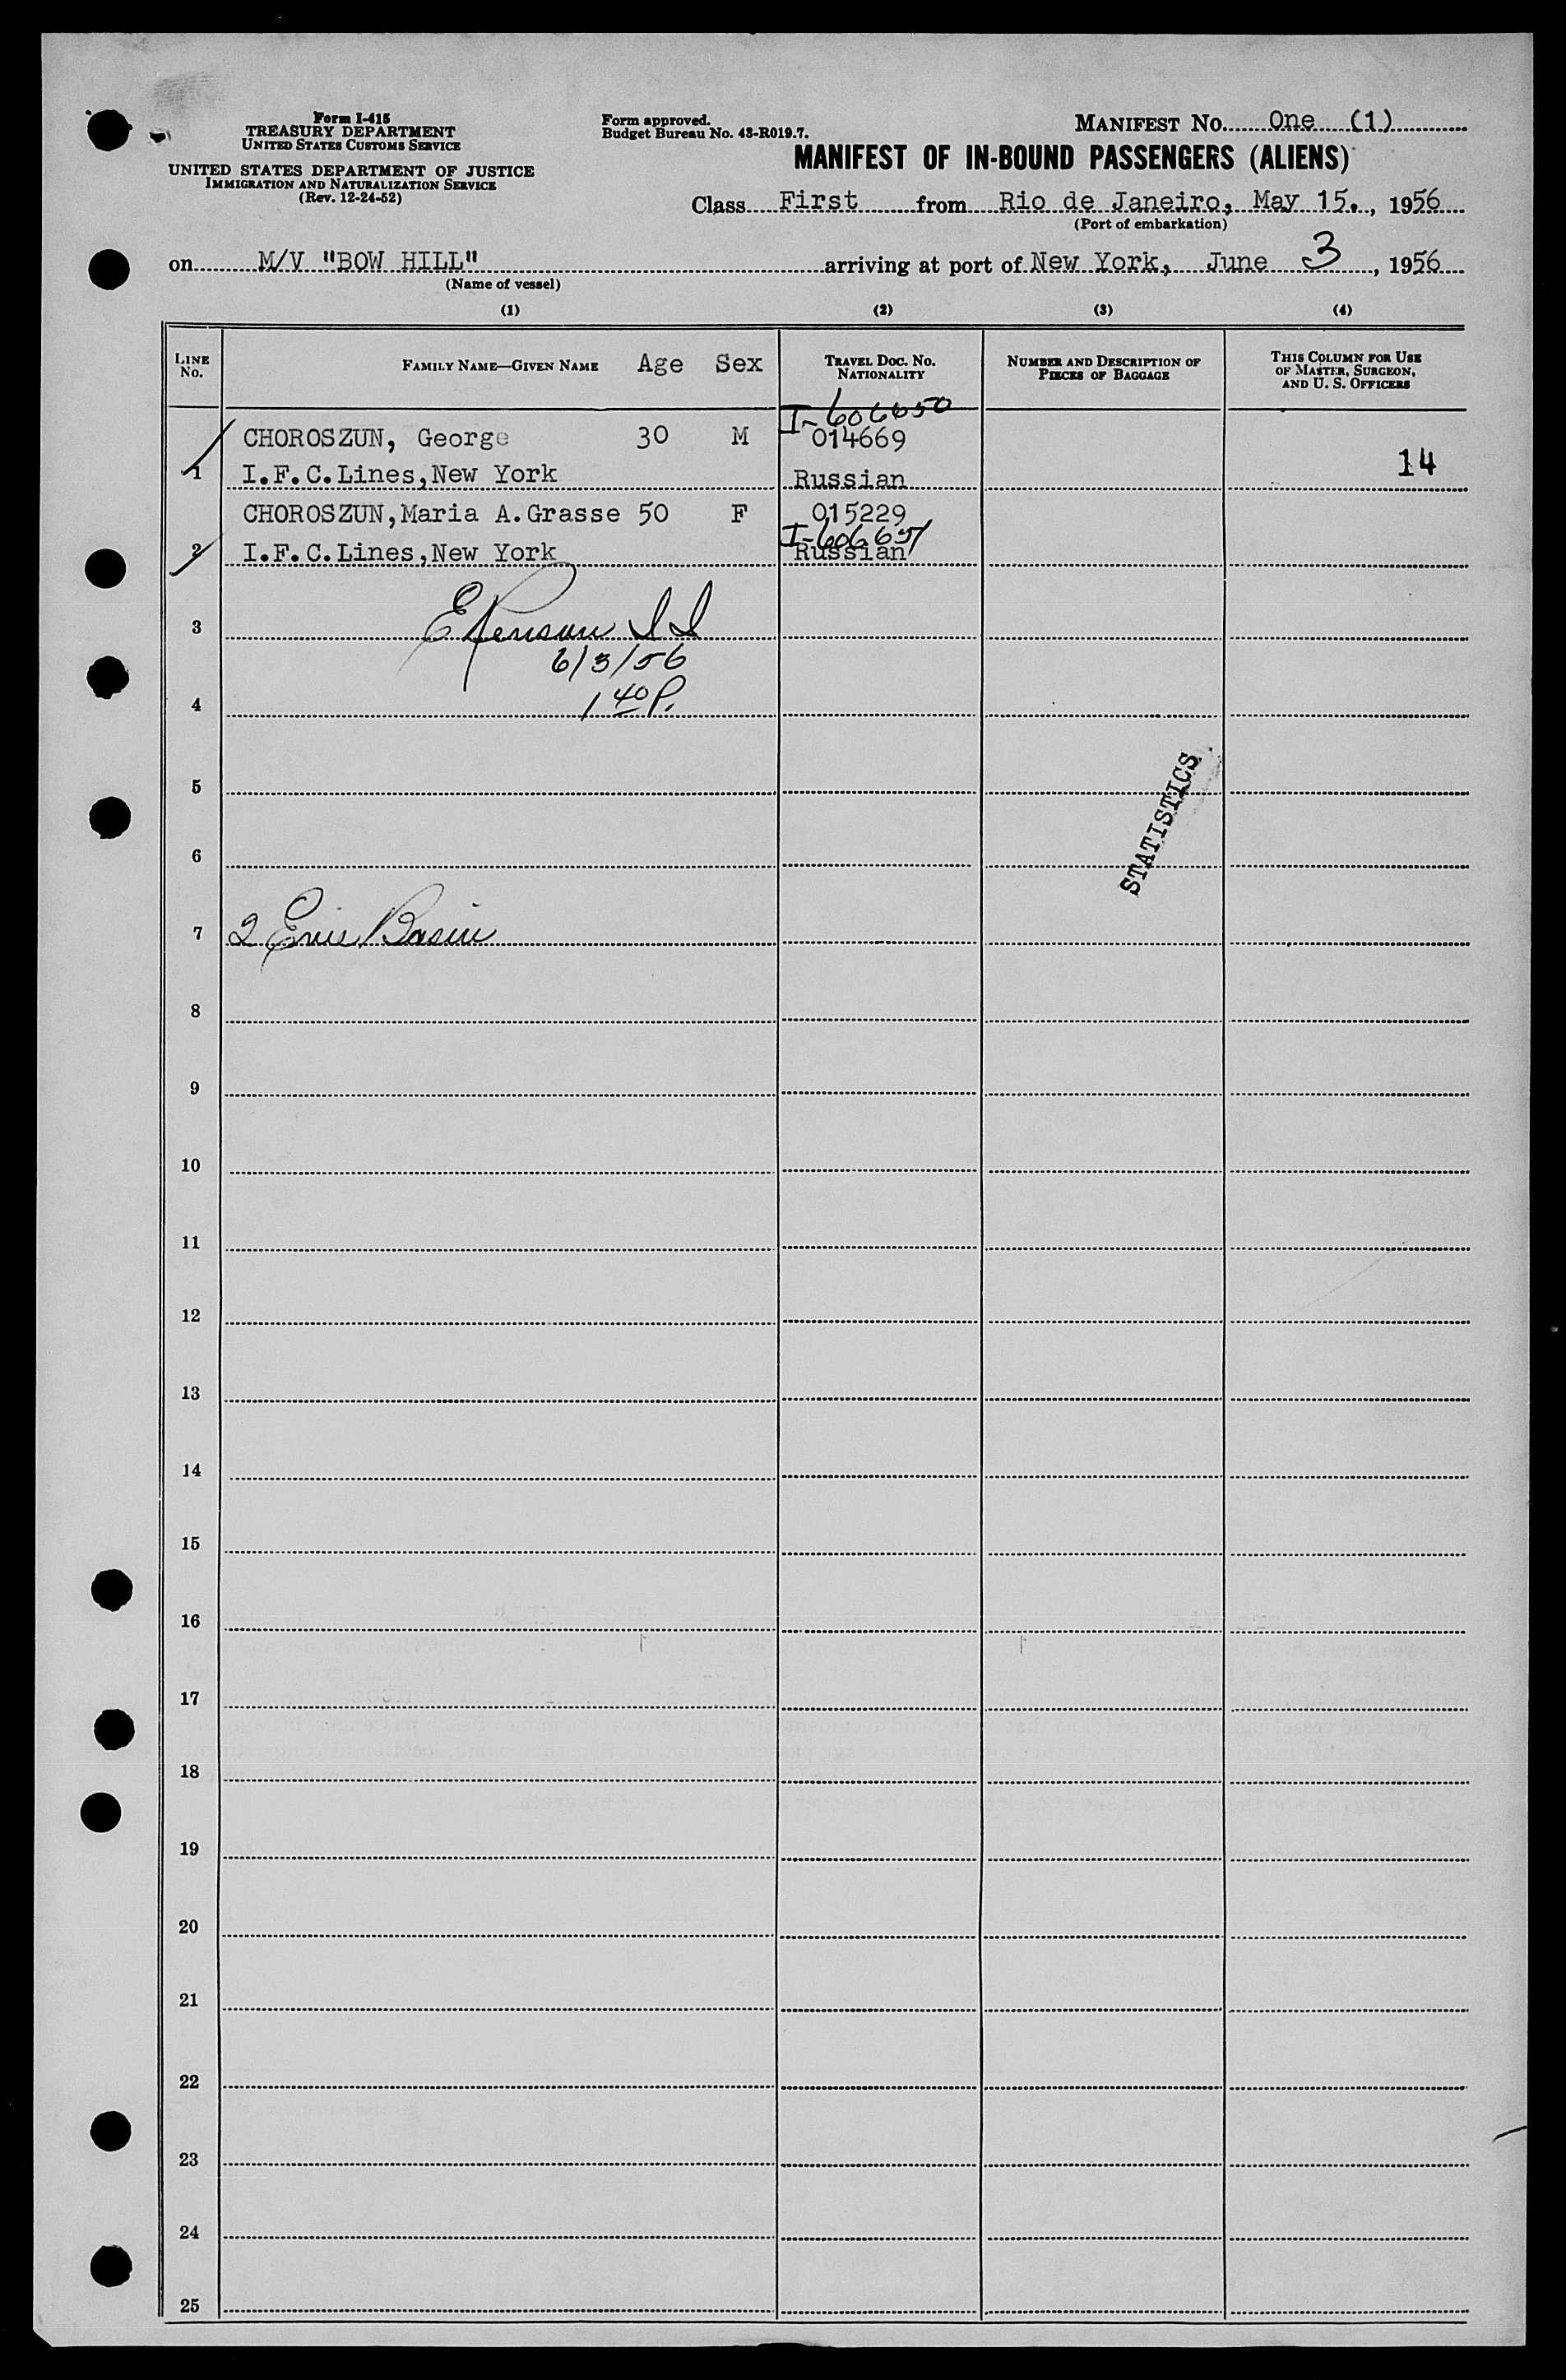 Form I-415
TREASURY DEPARTMENT
UNITED STATES CUSTOMS SERVICE
UNITED STATES DEPARTMENT OF JUSTICE
IMMIGRATION AND NATURALIZATION SERVICE
(Rev. 12-24-52)
Form approved.
Budget Bureau No. 43-R019.7.
MANIFEST NO. One (1)
MANIFEST OF IN-BOUND PASSENGERS (ALIENS)
Class First from Rio de Janeiro, May 15., 1956
(Port of embarkation)
on M/V "BOW HILL" arriving at port of New York, June 3, 1956
(Name of vessel)
(1) (2) (3) (4)
LINE NO. FAMILY NAME—GIVEN NAME Age Sex TRAVEL DOC. NO. NATIONALITY NUMBER AND DESCRIPTION OF PIECES OF BAGGAGE THIS COLUMN FOR USE OF MASTER, SURGEON, AND U. S. OFFICERS
I-606650
CHOROSZUN, George 30 M 014669
1 I.F.C.Lines,New York Russian 14
CHOROSZUN,Maria A.Grasse 50 F 015229
I-606651
2 I.F.C.Lines,New York Russian
3
6/3/56
4 1 40 P.
5
STATISTICS
6
7 2 Erie Basin
8
9
10
11
12
13
14
15
16
17
18
19
20
21
22
23
24
25